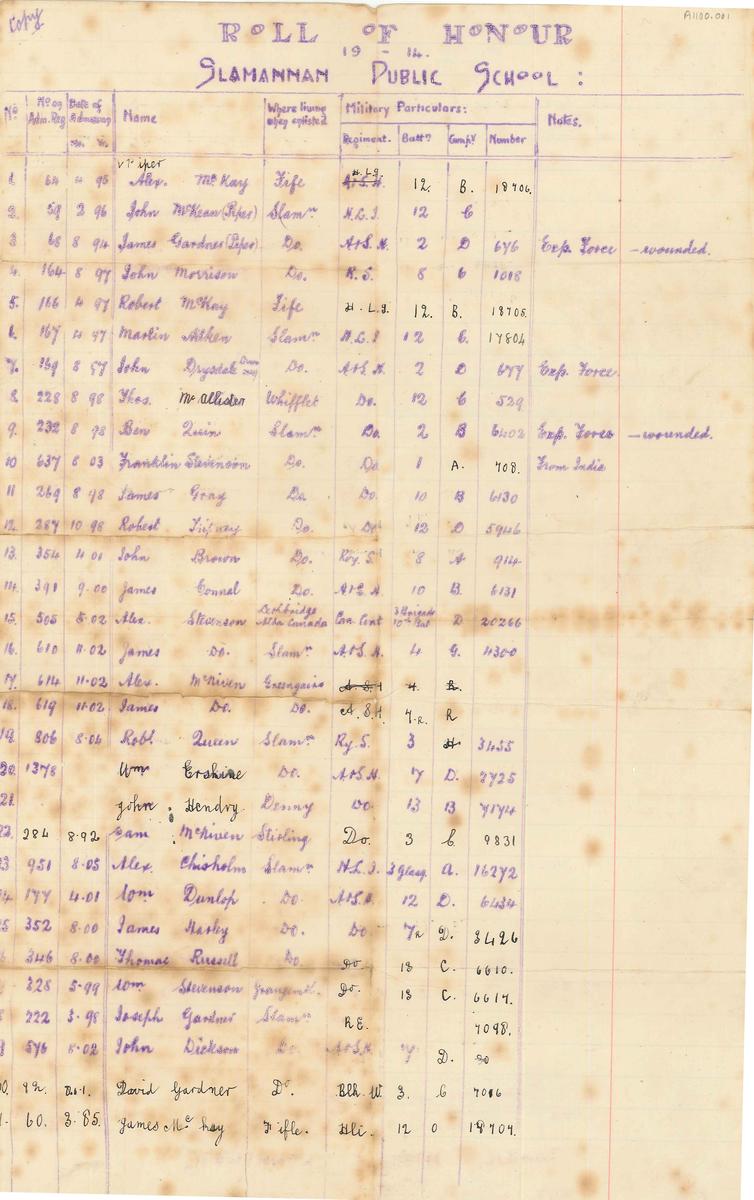 Copy
A1100.001
ROLL OF HONOUR
19 - 14.
SLAMANNAN PUBLIC SCHOOL :
No. No on Adm. Reg Date of Admission Name Where living when enlisted Military Particulars: Notes.
m. Y. Regiment. Battn Compy Number
Piper
H.L.I.
1 64 4 95 Alex. McKay Fife A&S.H. 12. B. 18706.
2. 59 2 96 John McKean (Piper) Slamn H.L.I. 12 C
3 68 8 94 James Gardner (Piper) Do. A&S.H. 2 D 676 Exp. Force - wounded.
4. 164 8 97 John Morrison Do. R.S. 8 6 1018
5. 166 4 97 Robert McKay Fife H.L.I. 12. B. 18705.
6. 167 4 97 Martin Aitken Slamn H.L.I 12 C. 17804
7. 169 8 97 John Drysdale Do. A&S.H. 2 D 677 Exp. Force.
8. 228 8 98 Thos. McAllister Whifflet Do. 12 C 529
9. 232 8 98 Ben Quin Slamn Do. 2 B 6402 Exp. Force - wounded.
10 637 8 03 Franklin Stevenson Do. Do 1 A. 708. From India
11 269 8 98 James Gray Do Do. 10 B 6130
12. 287 10 98 Robert Do. Do 12 D 5946
13. 354 4 01 John Brown Do. Roy. S. 8 A 914
14. 391 9.00 James Connal Do. A&S.H. 10 B. 6131
15. 505 5.02 Alex. Stevenson Lethbridge Alta Canada Can. Cont 3 Brigade 10th Bat D 20266
16. 610 11.02 James Do. Slamn A&S.H. 4 G. 4300
17. 614 11.02 Alex. McNiven Greengairs A.S.H 4. R.
18. 619 11.02 James Do. Do. A.S.H. 7.R. R
19. 806 8.04 Robt. Queen Slamn Ry.S. 3 H 3455
20. 1378 Wm Erskine Do. A&S.H. 7 D. 2725
21. John Hendry. Denny Do 13 B 7174
22. 284 8.92 Sam McNiven Stirling Do. 3 C. 9831
3 951 8.05 Alex. Chisholm Slamn H.L.I. 3 Glasg. A. 16272
4 177 4.01 Wm Dunlop Do. A&S.H. 12 D. 6434
5 352 8.00 James Do. Do 7R D. 3426
346 8.00 Thomas Russell Do Do. 13 C. 6610.
328 5.99 Wm Stevenson Do. 13 C. 6617.
222 3.98 Joseph Gardner Slamn R.E. 7098.
576 8.02 John Dickson Do. A&S.H. 7 D.
0. 92. David Gardner Do. Blk. W. 3. C 7016
1. 60. 3.85. James Fifle. Hli. 12 O 18707.